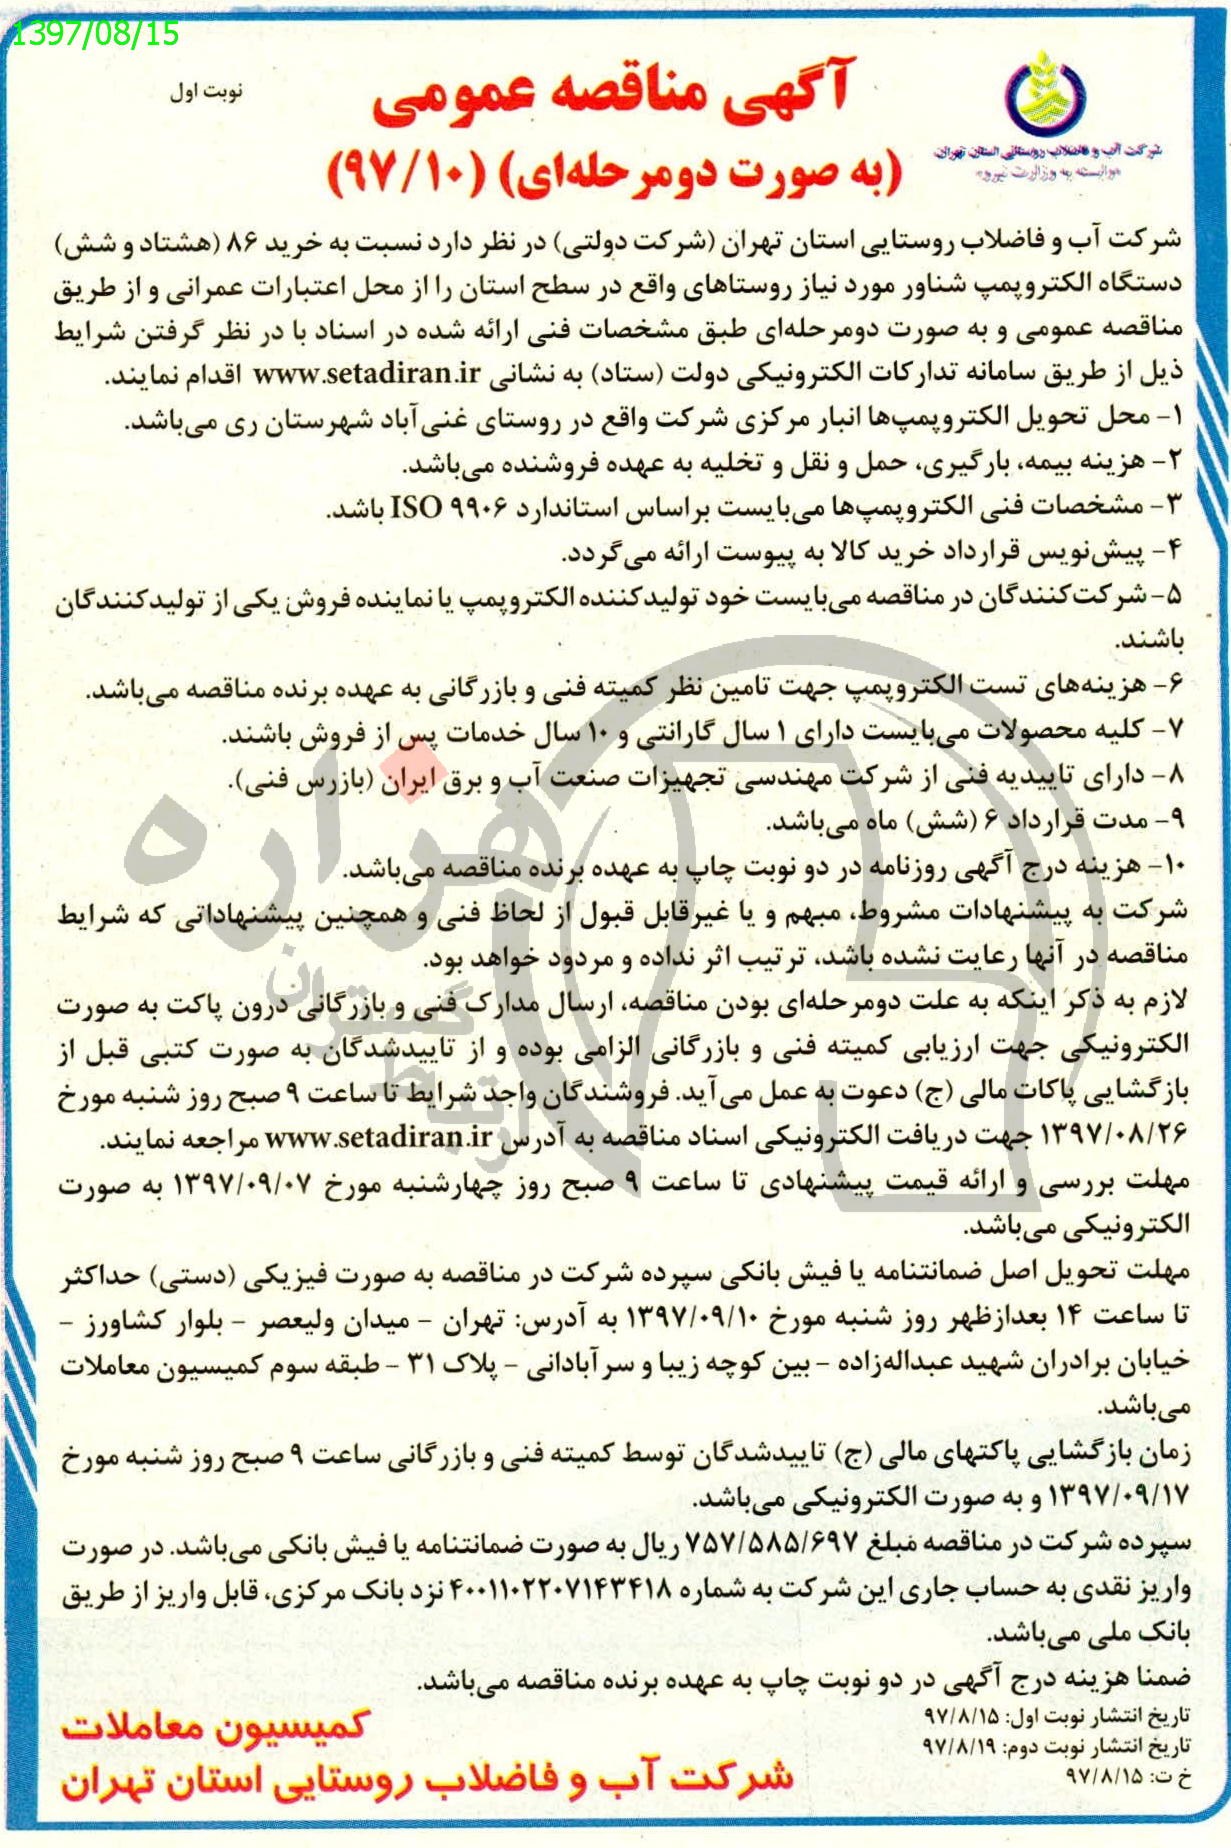 1397/08/15
شرکت آب و فاضلاب روستایی استان تهران
«وابسته به وزارت نیرو»
نوبت اول
آگهی مناقصه عمومی
(به صورت دومرحله‌ای) (۹۷/۱۰)
شرکت آب و فاضلاب روستایی استان تهران (شرکت دولتی) در نظر دارد نسبت به خرید ۸۶ (هشتاد و شش)
دستگاه الکتروپمپ شناور مورد نیاز روستاهای واقع در سطح استان را از محل اعتبارات عمرانی و از طریق
مناقصه عمومی و به صورت دومرحله‌ای طبق مشخصات فنی ارائه شده در اسناد با در نظر گرفتن شرایط
ذیل از طریق سامانه تدارکات الکترونیکی دولت (ستاد) به نشانی www.setadiran.ir اقدام نمایند.
۱- محل تحویل الکتروپمپ‌ها انبار مرکزی شرکت واقع در روستای غنی‌آباد شهرستان ری می‌باشد.
۲- هزینه بیمه، بارگیری، حمل و نقل و تخلیه به عهده فروشنده می‌باشد.
۳- مشخصات فنی الکتروپمپ‌ها می‌بایست براساس استاندارد ISO ۹۹۰۶ باشد.
۴- پیش‌نویس قرارداد خرید کالا به پیوست ارائه می‌گردد.
۵- شرکت‌کنندگان در مناقصه می‌بایست خود تولیدکننده الکتروپمپ یا نماینده فروش یکی از تولیدکنندگان
باشند.
۶- هزینه‌های تست الکتروپمپ جهت تامین نظر کمیته فنی و بازرگانی به عهده برنده مناقصه می‌باشد.
۷- کلیه محصولات می‌بایست دارای ۱ سال گارانتی و ۱۰ سال خدمات پس از فروش باشند.
۸- دارای تاییدیه فنی از شرکت مهندسی تجهیزات صنعت آب و برق ایران (بازرس فنی).
۹- مدت قرارداد ۶ (شش) ماه می‌باشد.
۱۰- هزینه درج آگهی روزنامه در دو نوبت چاپ به عهده برنده مناقصه می‌باشد.
شرکت به پیشنهادات مشروط، مبهم و یا غیرقابل قبول از لحاظ فنی و همچنین پیشنهاداتی که شرایط
مناقصه در آنها رعایت نشده باشد، ترتیب اثر نداده و مردود خواهد بود.
لازم به ذکر اینکه به علت دومرحله‌ای بودن مناقصه، ارسال مدارک فنی و بازرگانی درون پاکت به صورت
الکترونیکی جهت ارزیابی کمیته فنی و بازرگانی الزامی بوده و از تاییدشدگان به صورت کتبی قبل از
بازگشایی پاکات مالی (ج) دعوت به عمل می‌آید. فروشندگان واجد شرایط تا ساعت ۹ صبح روز شنبه مورخ
۱۳۹۷/۰۸/۲۶ جهت دریافت الکترونیکی اسناد مناقصه به آدرس www.setadiran.ir مراجعه نمایند.
مهلت بررسی و ارائه قیمت پیشنهادی تا ساعت ۹ صبح روز چهارشنبه مورخ ۱۳۹۷/۰۹/۰۷ به صورت
الکترونیکی می‌باشد.
مهلت تحویل اصل ضمانتنامه یا فیش بانکی سپرده شرکت در مناقصه به صورت فیزیکی (دستی) حداکثر
تا ساعت ۱۴ بعدازظهر روز شنبه مورخ ۱۳۹۷/۰۹/۱۰ به آدرس: تهران - میدان ولیعصر - بلوار کشاورز -
خیابان برادران شهید عبداله‌زاده - بین کوچه زیبا و سرآبادانی - پلاک ۳۱ - طبقه سوم کمیسیون معاملات
می‌باشد.
زمان بازگشایی پاکتهای مالی (ج) تاییدشدگان توسط کمیته فنی و بازرگانی ساعت ۹ صبح روز شنبه مورخ
۱۳۹۷/۰۹/۱۷ و به صورت الکترونیکی می‌باشد.
سپرده شرکت در مناقصه مبلغ ۷۵۷/۵۸۵/۶۹۷ ریال به صورت ضمانتنامه یا فیش بانکی می‌باشد. در صورت
واریز نقدی به حساب جاری این شرکت به شماره ۴۰۰۱۱۰۲۲۰۷۱۴۳۴۱۸ نزد بانک مرکزی، قابل واریز از طریق
بانک ملی می‌باشد.
ضمنا هزینه درج آگهی در دو نوبت چاپ به عهده برنده مناقصه می‌باشد.
تاریخ انتشار نوبت اول: ۹۷/۸/۱۵
تاریخ انتشار نوبت دوم: ۹۷/۸/۱۹
خ ت: ۹۷/۸/۱۵
کمیسیون معاملات
شرکت آب و فاضلاب روستایی استان تهران
هزاره